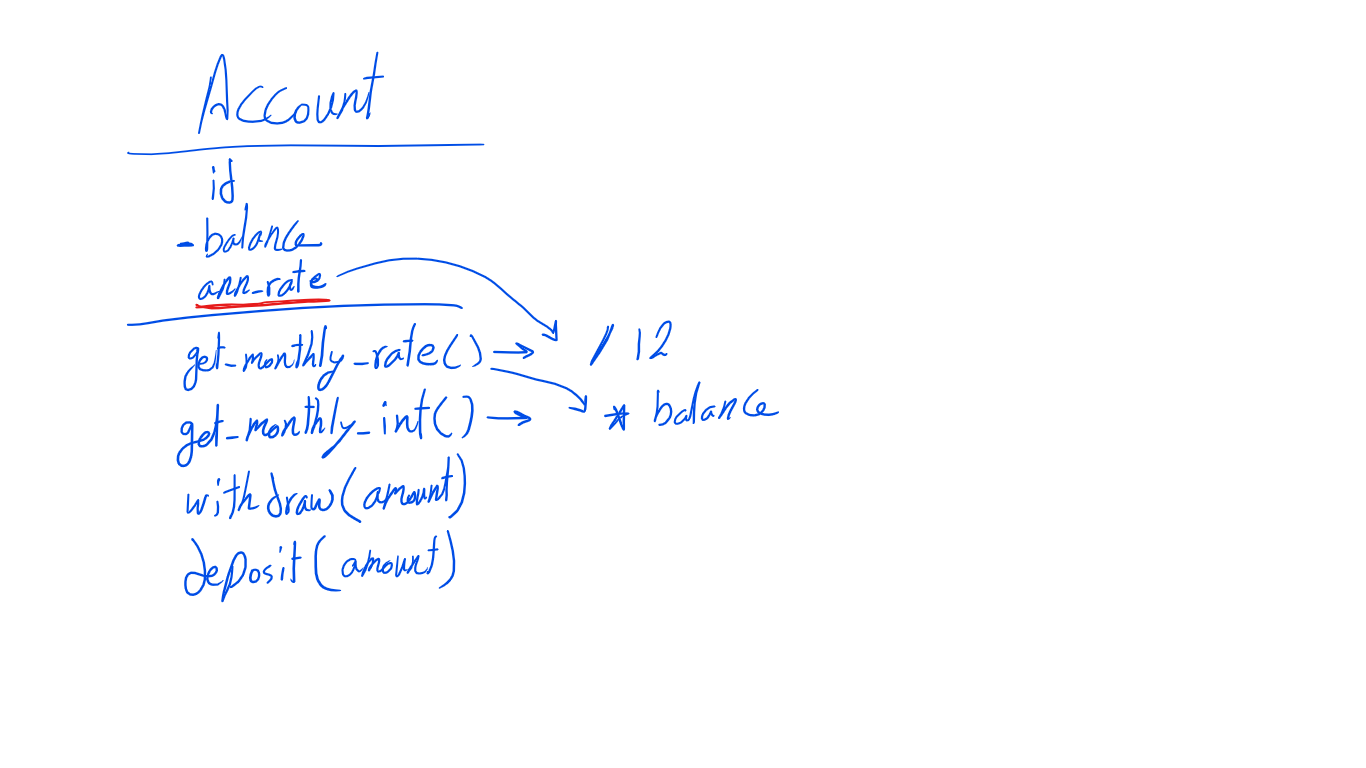 Account
id
- balance
ann_rate
get_monthly_rate() → / 12
get_monthly_int() → * balance
withdraw(amount)
deposit(amount)